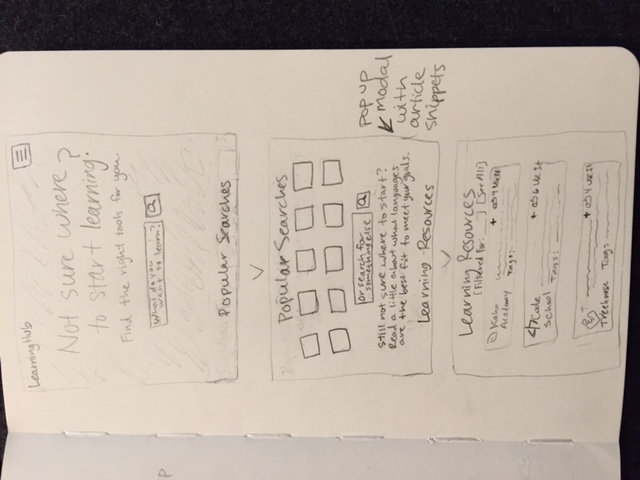 LearningHub
Not sure where
to start learning?
Find the right tools for you.
What do you
want to learn?
Popular Searches
Popular Searches
or search for
something else
Still not sure where to start?
Read a little about what languages
are the best fit to meet your goals.
Learning Resources
pop up
modal
with
article
snippets
Learning Resources
[Filtered For: ] [See All]
Kahn
Academy
Tags:
Code
School
Tags:
Treehouse Tags